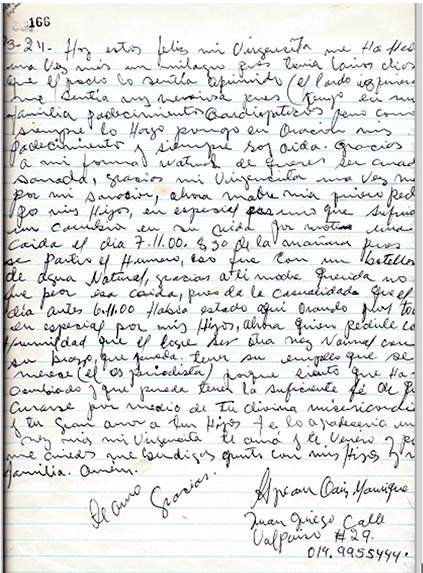 166
3-24- Hoy estoy feliz mi Virgencita me Ha Hecho
una vez más un milagro pues tenía varios días
que el pecho lo sentía oprimido (el lado izquierdo
me sentía muy nerviosa pues (tengo en mi
familia padecimientos Cardiopáticos pero como
siempre lo Hago pongo en Oración mis
padecimiento y siempre soy oida. gracias
a mi forma Natural de querer ser
sanada, gracias mi Virgencita una vez más
por mi sanación, ahora madre mia quiero
por mis Hijos, en especial uno que
un cambio en su vida por una
caida el día 7.11.00. 8:30 de la mañana pues
se partió el Humero, eso fue con un botellon
de agua Natural, gracias a ti madre querida no
fue peor esa caida, pues da la casualidad que el
día antes 6.11.00 Había estado aquí Orando por
en especial por mis Hijos, ahora quiero pedirte con
Humildad que el logre ser otra vez Normal con
su brazo, que pueda tener su empleo que se
merece (el es periodista) porque siento que Ha
Cambiado y que pueda tener la suficiente fé de
Curarse por medio de tu divina misericordia
y tu gran amor a tus Hijos te lo agradecería una
vez más mi Virgencita te ama y te Venero y
me bendigas junto con mis Hijos y mi
familia. Amén.
Te amo Gracias.
Manrique
Juan Griego Calle
Valparíso #29.
014. 9955444.